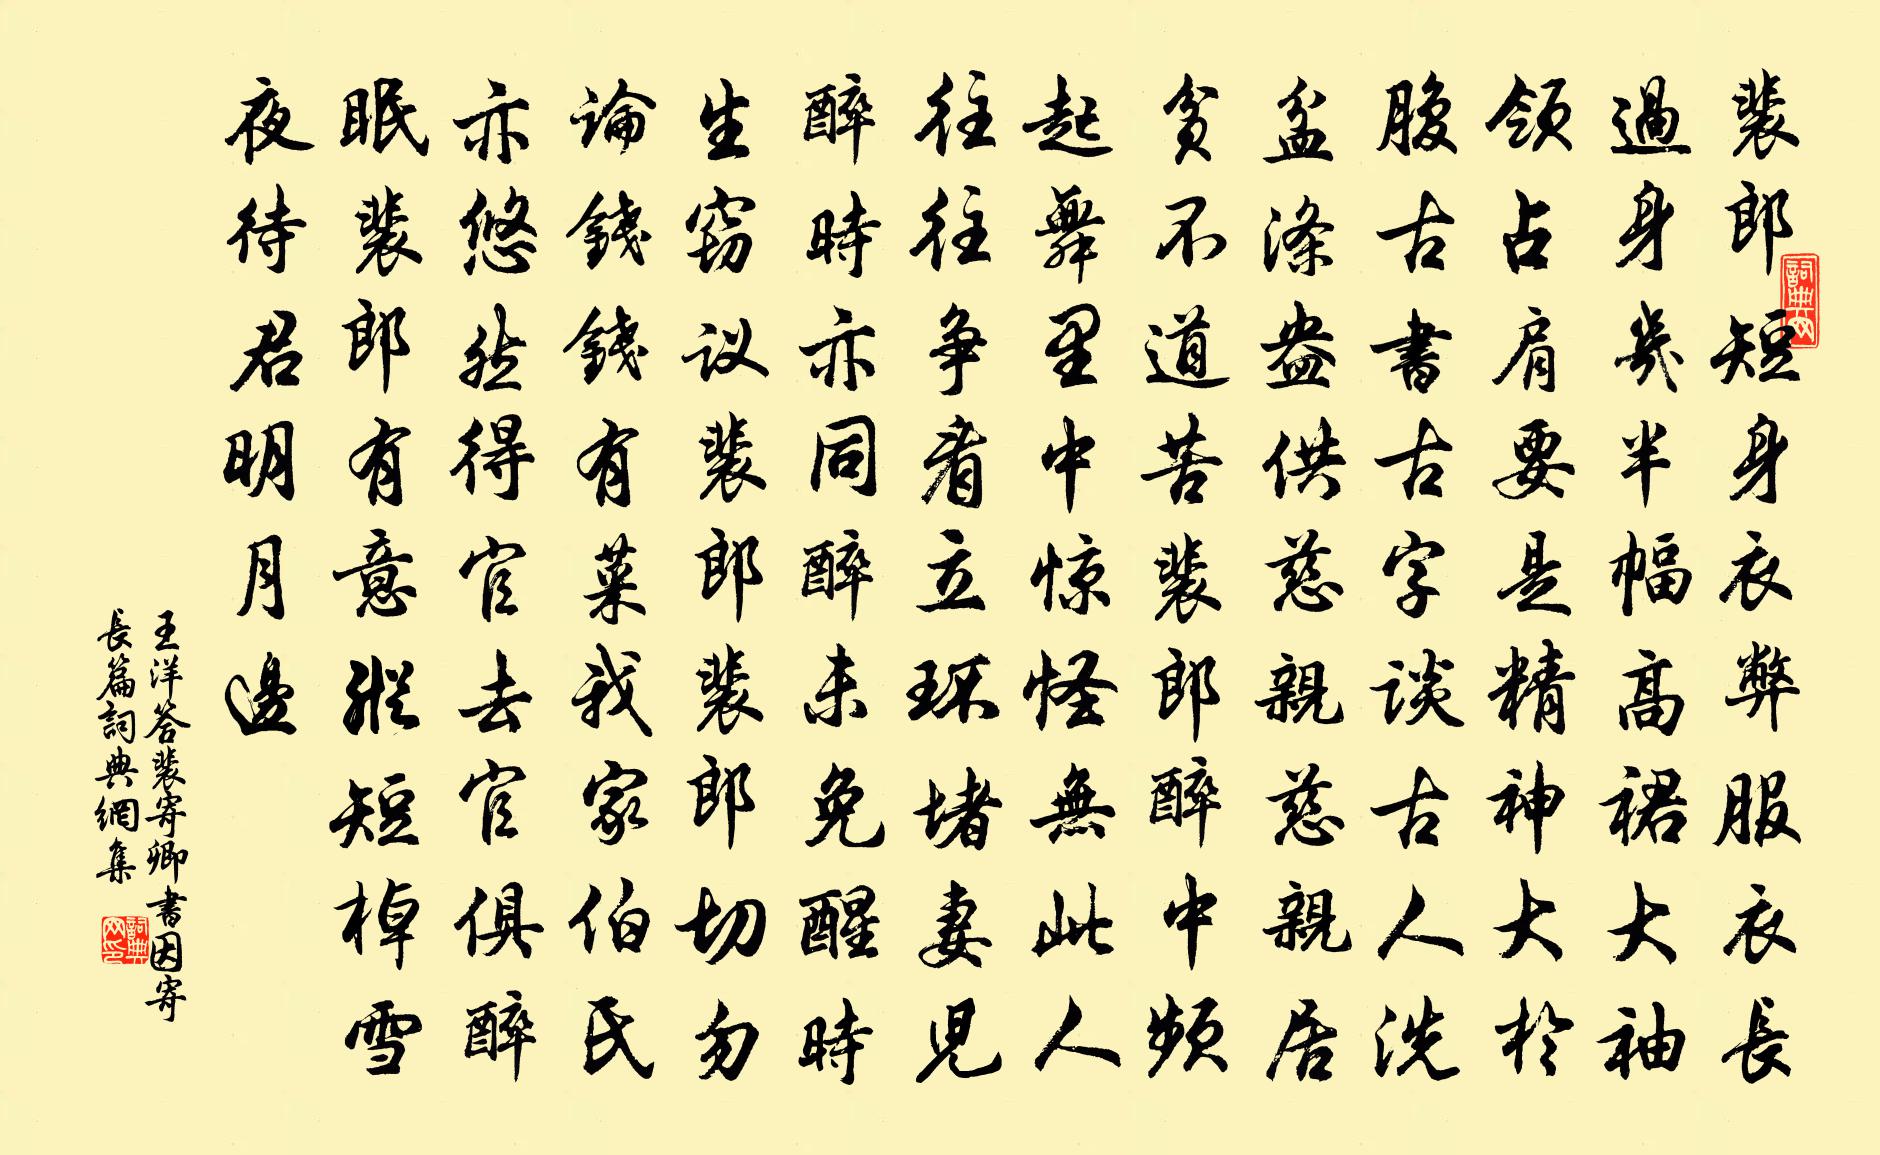 裴郎短身衣弊服衣長
過身幾半幅高裙大袖
領占肩要是精神大於
腹古書古字談古人洗
盆滌盎供慈親慈親居
貧不道苦裴郎醉中頻
起舞里中惊怪無此人
往往争看立环堵妻兒
醉時亦同醉未免醒時
生窃议裴郎裴郎切勿
論錢錢有菓我家伯氏
亦悠然得官去官俱醉
眠裴郎有意縱短棹雪
夜待君明月邊
王洋答裴寄卿書因寄
長篇詞典網集
詞典网
詞典网印